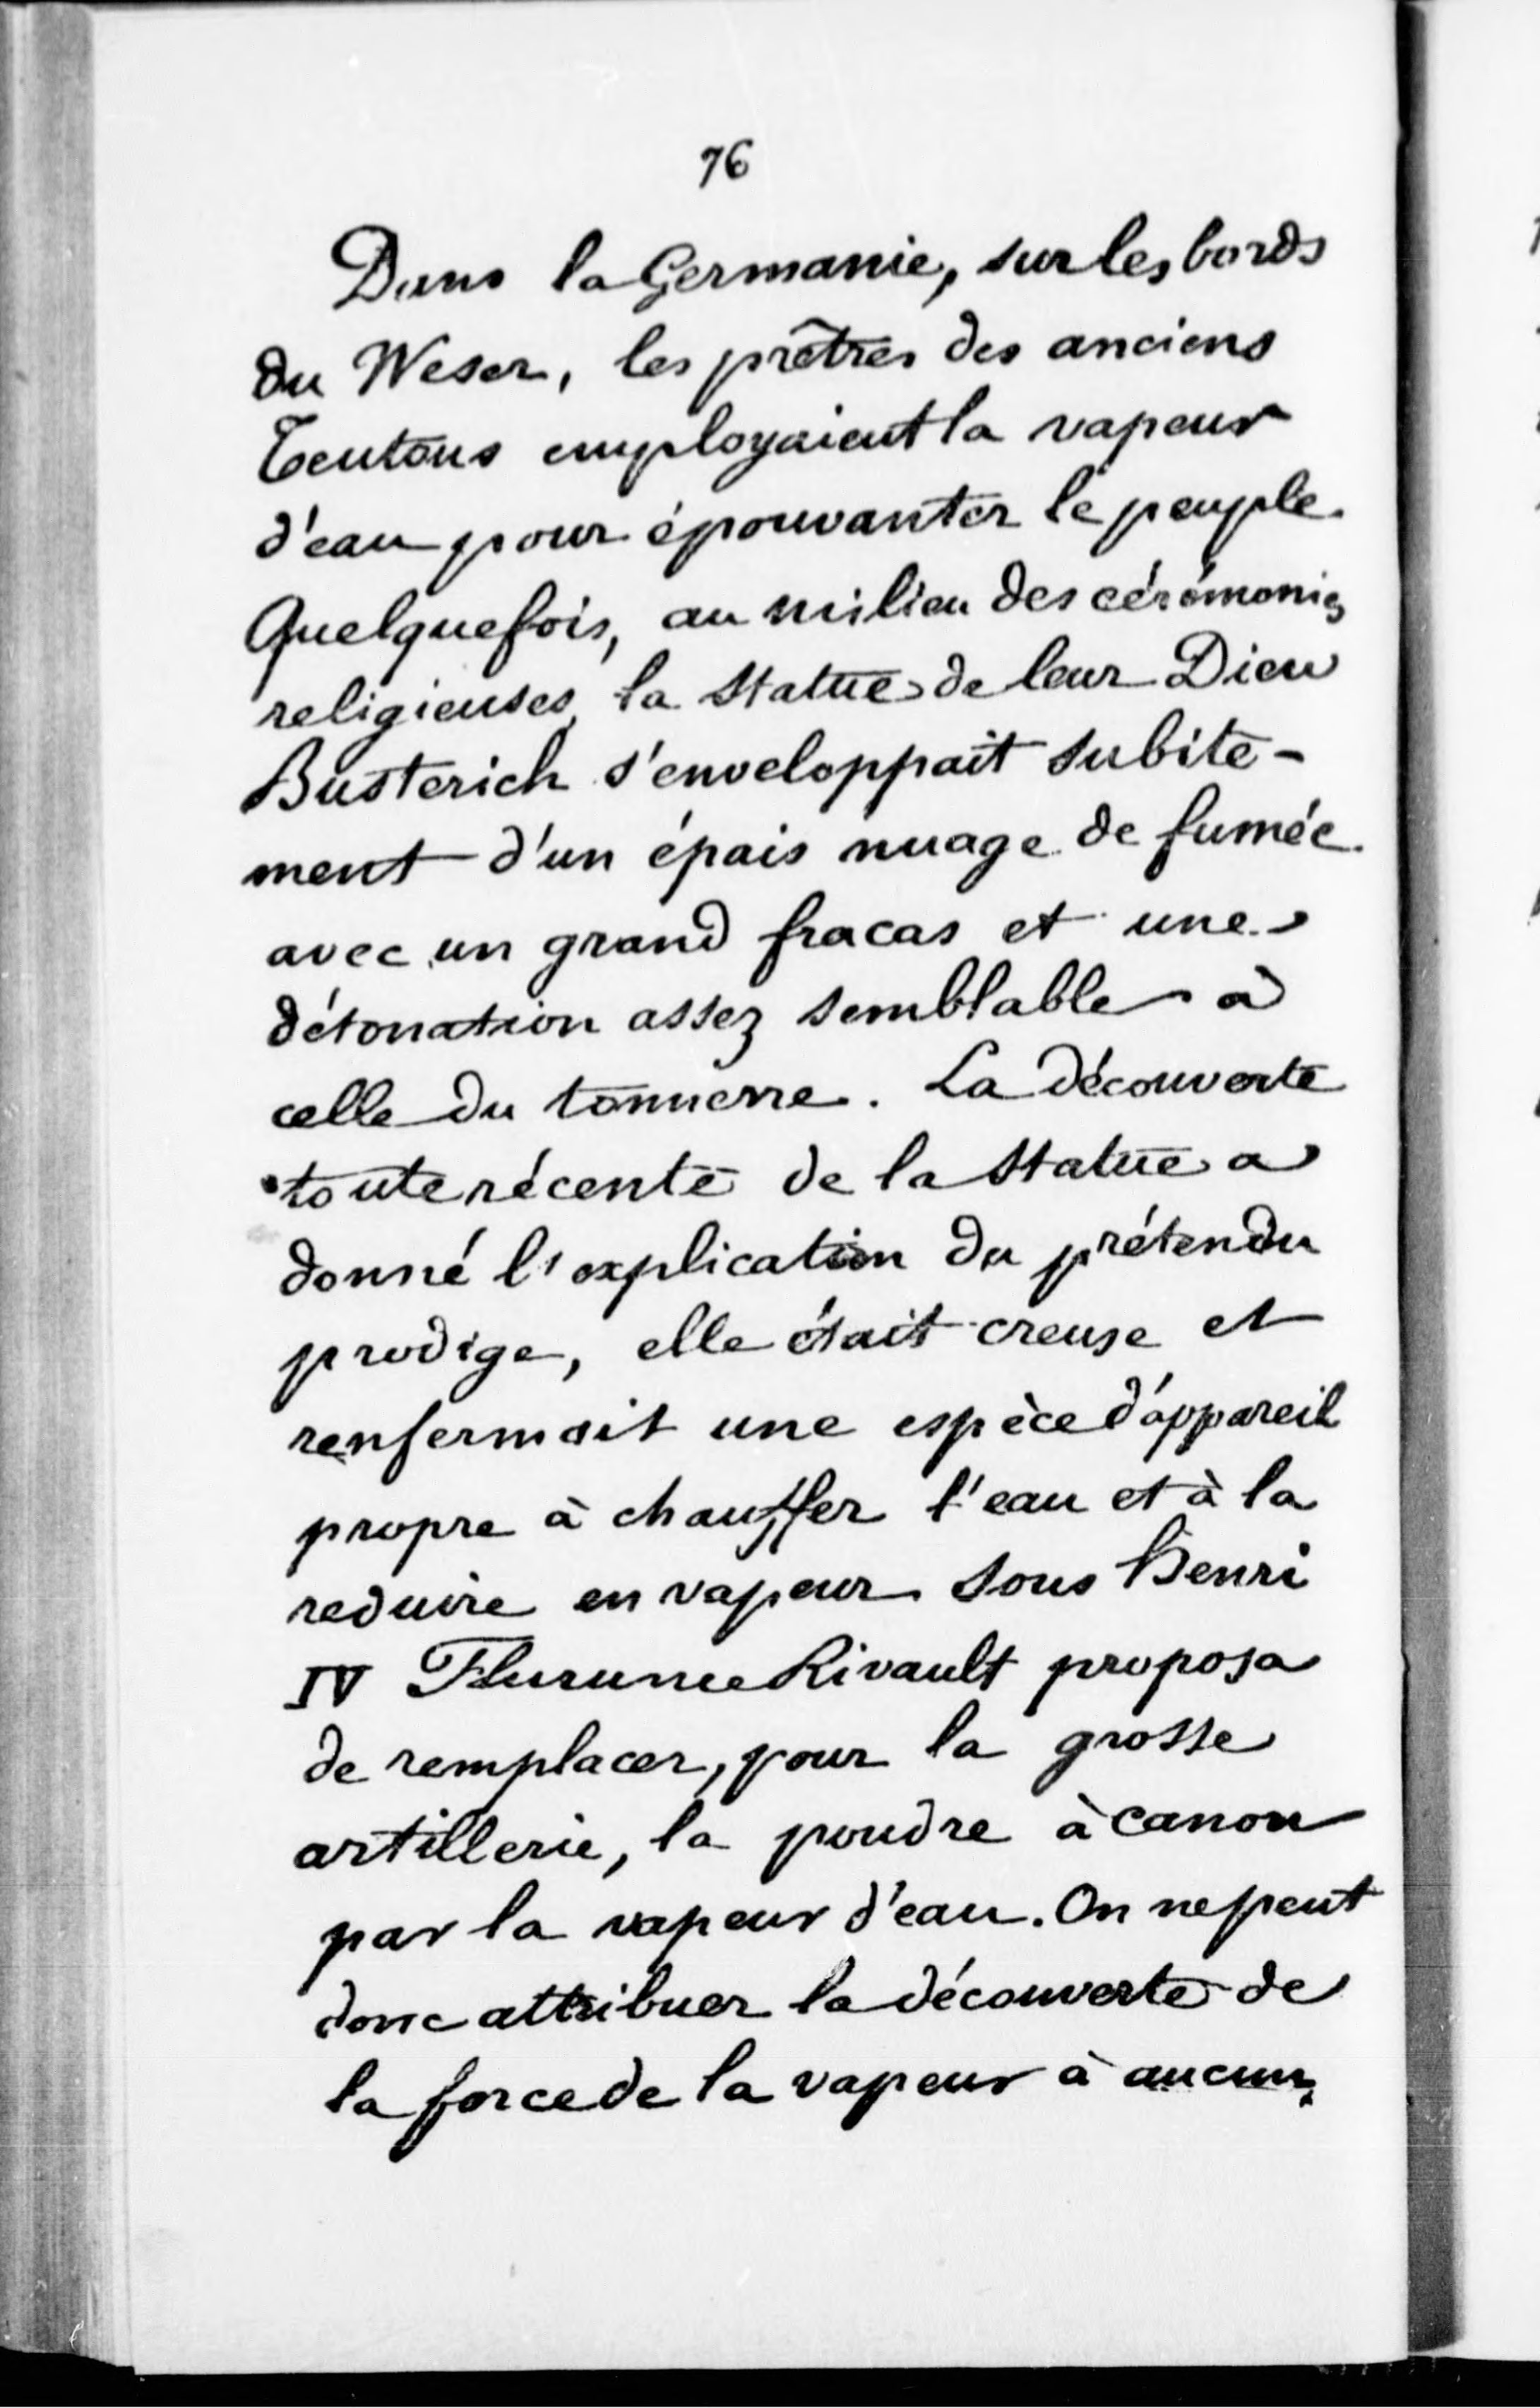 76
Dans la Germanie, sur les bords
du Weser, les prêtres des anciens
Teutons employaient la vapeur
d'eau pour épouvanter le peuple.
Quelquefois, au milieu des cérémonies
religieuses, la statue de leur Dieu
Busterich s'enveloppait subite-
ment d'un épais nuage de fumée
avec un grand fracas et une
détonation assez semblable à
celle du tonnerre. La découverte
toute récente de la statue a
donné l'explication du prétendu
prodige, elle était creuse et
renfermait une espèce d'appareil
propre à chauffer l'eau et à la
reduire en vapeur sous Henri
IV Rivault proposa
de remplacer, pour la grosse
artillerie, la poudre à canon
par la vapeur d'eau. On ne peut
donc attribuer la découverte de
la force de la vapeur à aucun